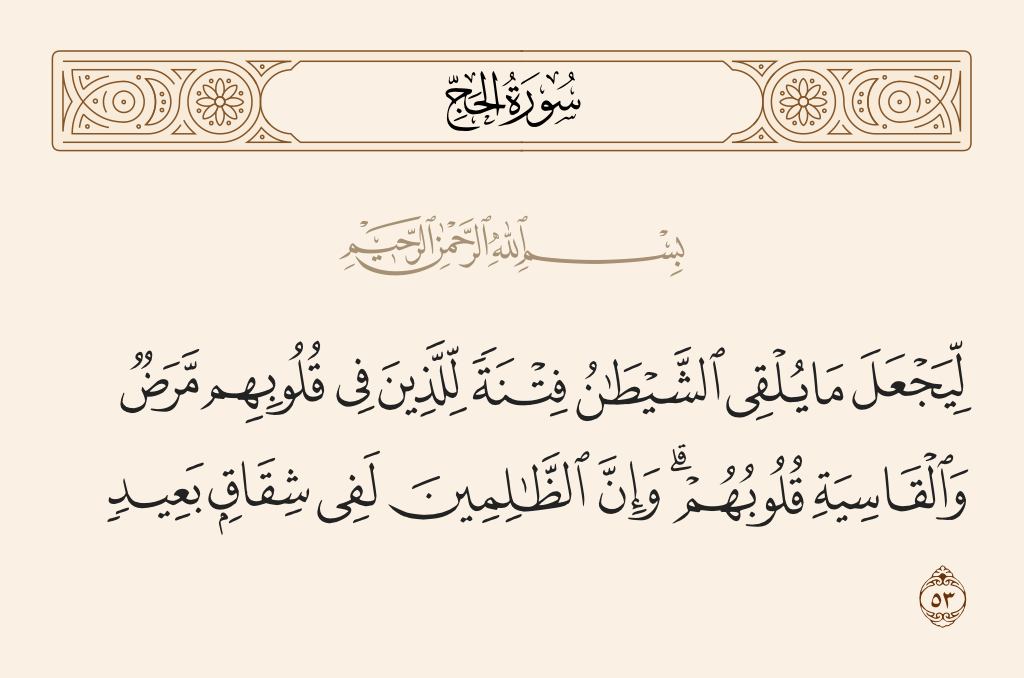 سُورَةُ الحَجِّ
بِسْمِ ٱللَّهِ ٱلرَّحْمَٰنِ ٱلرَّحِيمِ
لِّيَجْعَلَ مَا يُلْقِى ٱلشَّيْطَٰنُ فِتْنَةً لِّلَّذِينَ فِى قُلُوبِهِم مَّرَضٌ
وَٱلْقَاسِيَةِ قُلُوبُهُمْ ۗ وَإِنَّ ٱلظَّٰلِمِينَ لَفِى شِقَاقٍۭ بَعِيدٍ
٥٣